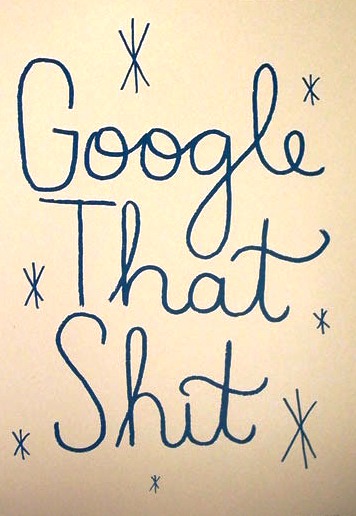 Google
That
Shit